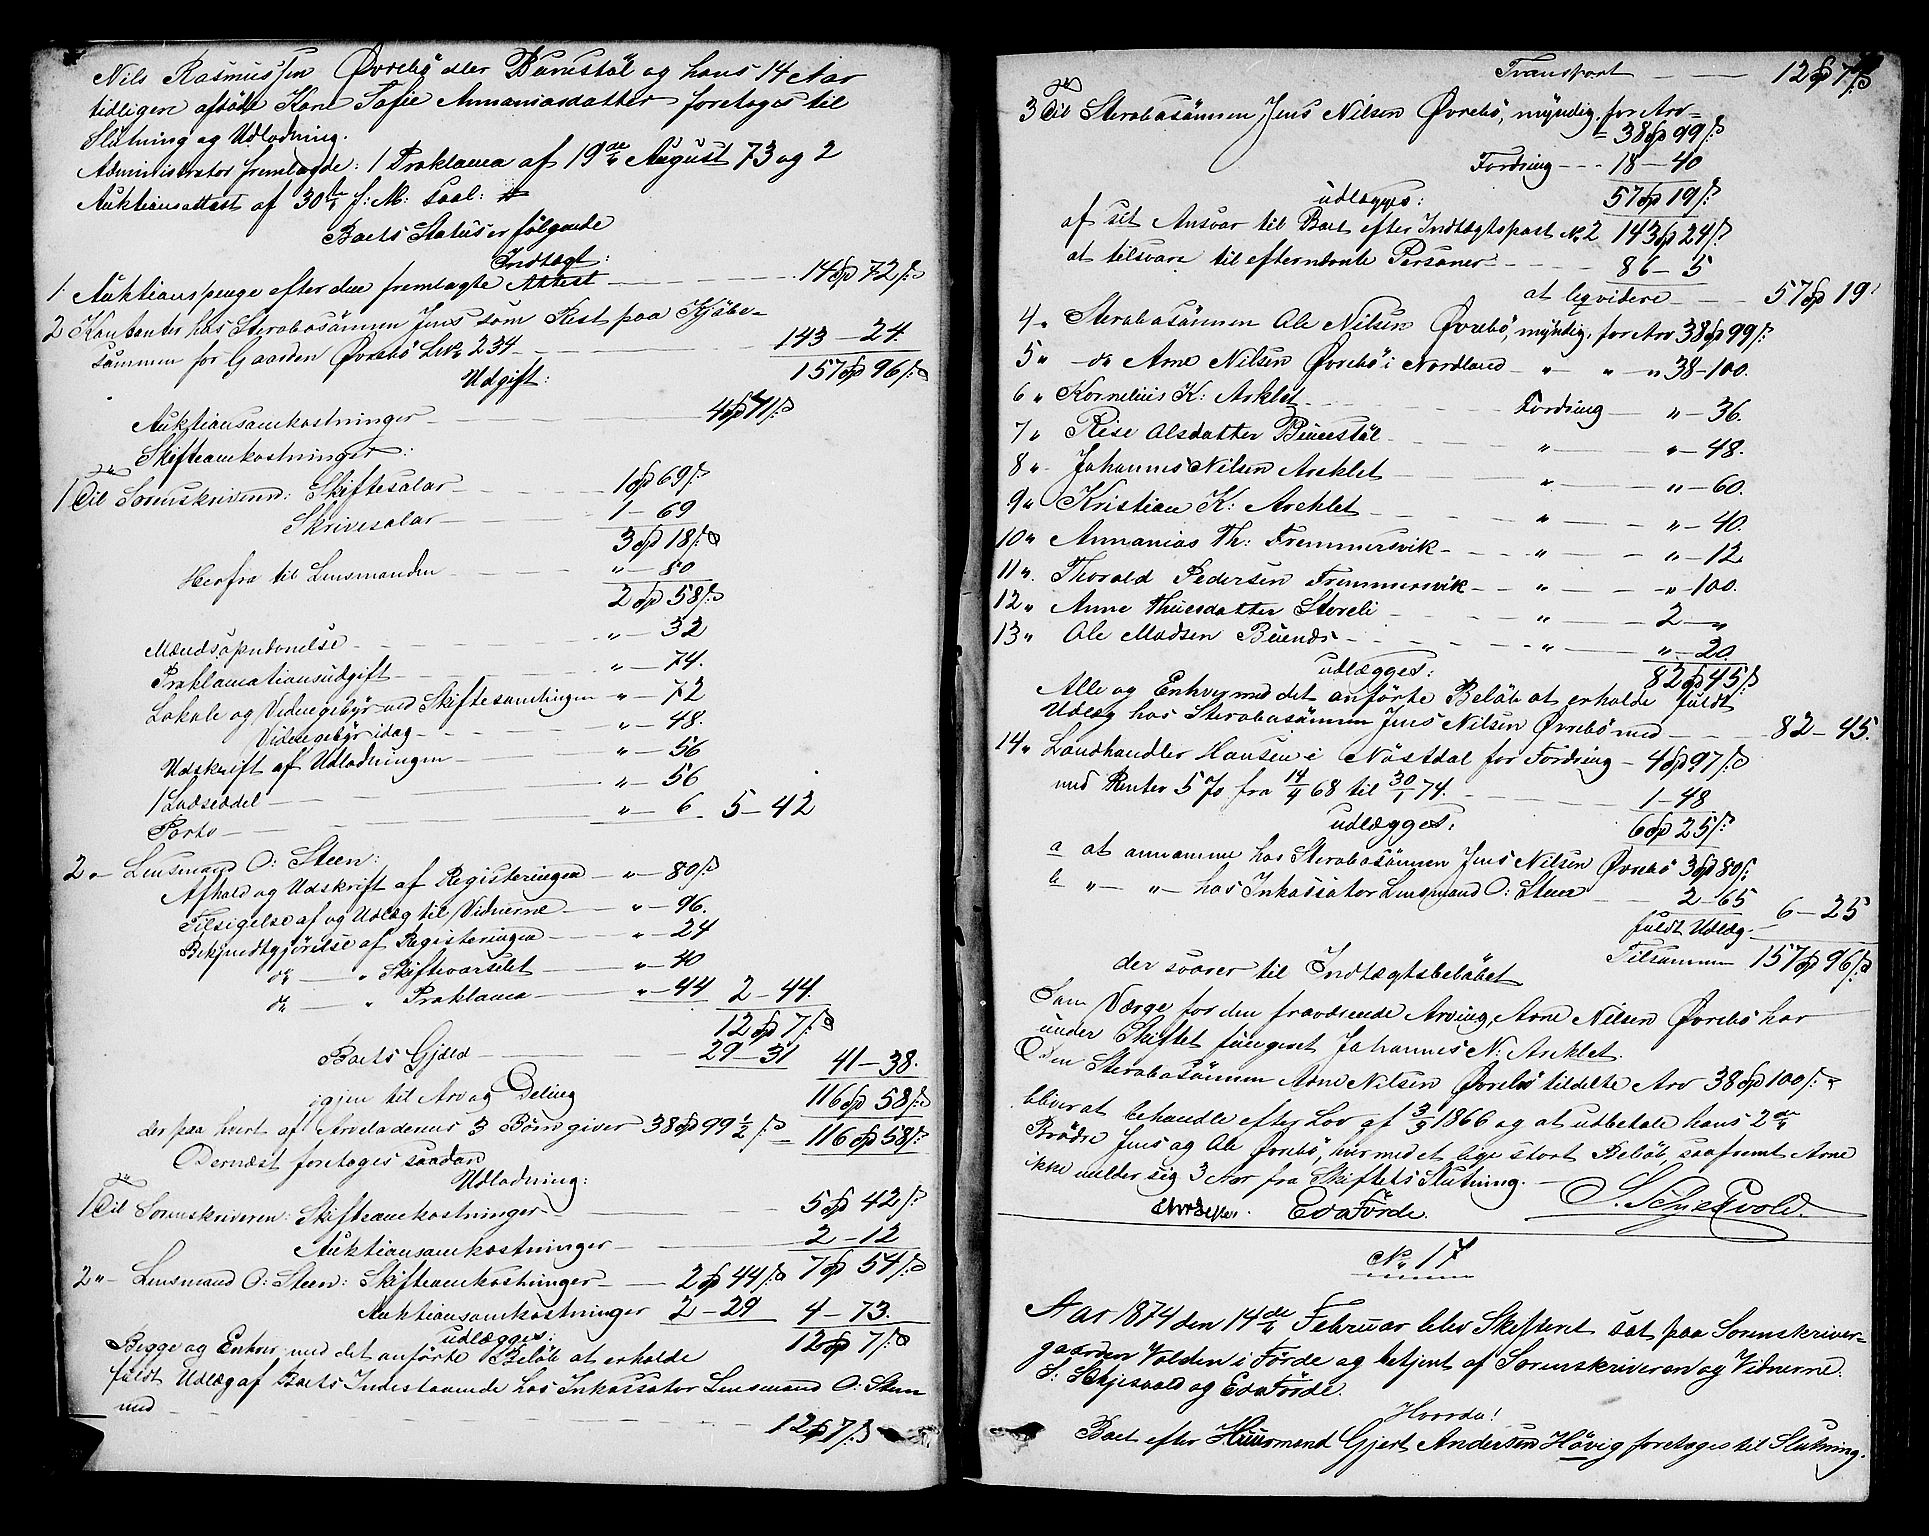 Nils Rasmussen Øvrebö eller Buestöl og hans 14 Aar
tidligere afdöde Kone Sofie Annaniasdatter foretoges til
Slutning og Udlodning.
Administrator fremlagde: 1 Proklama af 19de August 73 og 2
Auktionsattest af 30te f: M: saal:
Boets Status er fölgende
Indtægt:
1 Auktionspenge efter den fremlagte Attest — 14 Sp 72 ß
2 Kontanter hos Sterbosönnen Jens som Rest paa Kjöbe-
summen for Gaarden Øvrebö Lno 234 — 143 – 24.
157 Sp 96 ß
Udgift:
Auktionsomkostninger — 4 Sp 71 ß
Skifteomkostninger:
1 Til Sorenskriveren: Skiftesalar — 1 Sp 69 ß
Skrivesalar — 1 – 69
3 Sp 18 ß
Herfra til Lensmanden — " – 80
2 Sp 58 ß
Mændsopnævnelse — " – 32
Proklamationsudgift — " – 74.
Lokale og Vidnegebyr ved Skiftesamlingen " – 72
Vidnegebyr idag — " – 48.
Udskrift af Udlodningen — " – 56
1 Lodseddel — " – 56
Porto — " – 6 – 5 – 42
2 " – Lensmand O: Steen:
Afhold og Udskrift af Registeringen — " – 80 ß
Tilsigelse af og Udlæg til Vidnerne — " – 96.
Bekjendtgjörelse af Registeringen — " – 24
do — " Skiftevarselet — " – 40
do — " Proklama — " – 44 2 – 44.
12 Sp 7 ß
Boets Gjæld — 29 – 31 41 – 38.
igjen til Arv og Deling 116 Sp 58 ß
der paa hvert af Arveladernes 3 Börn giver 38 Sp 99 1/2 ß = 116 Sp 58 ß
Dernæst foretoges saadan
Udlodning:
1 Til Sorenskriveren: Skifteomkostninger — 5 Sp 42 ß
Auktionsomkostninger — 2 – 12
2 " – Lensmand O: Steen: Skifteomkostninger — 2 Sp 44 ß 7 Sp 54 ß
Auktionsomkostninger 2 – 29 4 – 73.
udlægges: 12 Sp 7 ß
Begge og Enhver med det anförte Belöb at erholde
fuldt Udlæg af Boets Indestaaende hos Inkassator Lensmand O: Steen
med — 12 Sp 7 ß
Transport — 12 Sp 7 ß
3 Til Sterbosönnen Jens Nilsen Øvrebö, myndig, for Arv-
= 38 Sp 99 ß
Fordring — 18 – 40
udlægges: 57 Sp 19 ß
af sit Ansvar til Boet efter Indtægtspost No 2 143 Sp 24 ß
at tilsvare til efternævnte Personer — 86 – 5
at liqvidere — 57 Sp 19
4 " Sterbosönnen Ole Nilsen Øvrebö, myndig, for Arv 38 Sp 99 ß
5 " – do Arne Nilsen Øvrebö i Nordland — " " " 38 – 100.
6 " Kornelius K: Arklet — Fordring — " – 36.
7 " Rise Olsdatter Buestöl — " — " – 48.
8 " Johannes Nilsen Arklet — " — " – 60.
9 " Kristian K: Arklet — " — " – 40.
10 " Annanias Th: Fremmersvik — " — " – 12
11 " Thorald Pedersen Fremmersvik — " — " – 100.
12 " Anne Thuesdatter Storeli — " — 2 – "
13 " Ole Madsen Buenæs — " — " – 20.
udlægges: 82 Sp 45 ß
Alle og Enhver med det anförte Belöb at erholde fuldt
Udlæg hos Sterbosönnen Jens Nilsen Øvrebö med — 82 – 45.
14 " Landhandler Hansen i Nöstdal for Fordring — 4 Sp 97 ß
med Renter 5 % fra 14/4 68 til 30/1 74. — 1 – 48
udlægges: 6 Sp 25 ß
a at annamme hos Sterbosönnen Jens Nilsen Øvrebö 3 Sp 80 ß
b " – " – hos Inkassator Lensmand O: Steen — 2 – 65
fuldt Udlæg — 6 – 25
Tilsammen 157 Sp 96 ß
der svarer til Indtægtsbelöbet
Som Værge for den fraværende Arving, Arne Nilsen Øvrebö har
under Skiftet fungeret Johannes N: Arklet.
Den Sterbosönnen Arne Nilsen Øvrebö tildelte Arv 38 Sp 100 ß
bliver at behandle efter Lov af 3/5 1866 og at udbetale hans 2de
Brödre Jens og Ole Øvrebö, hver med et lige stort Belöb, saafremt Arne
ikke melder sig 3 Aar fra Skiftets Slutning. —
S. Schjelvold.
E v a Förde.
No 17
Aar 1874 den 14de Februar blev Skifteret sat paa Sorenskriver-
gaarden Volden i Förde og betjent af Sorenskriveren og Vidnerne
S: Skjesvold og E v a Förde.
Hvorda!
Boet efter Huusmand Gjert Andersen Hövig foretoges til Slutning.